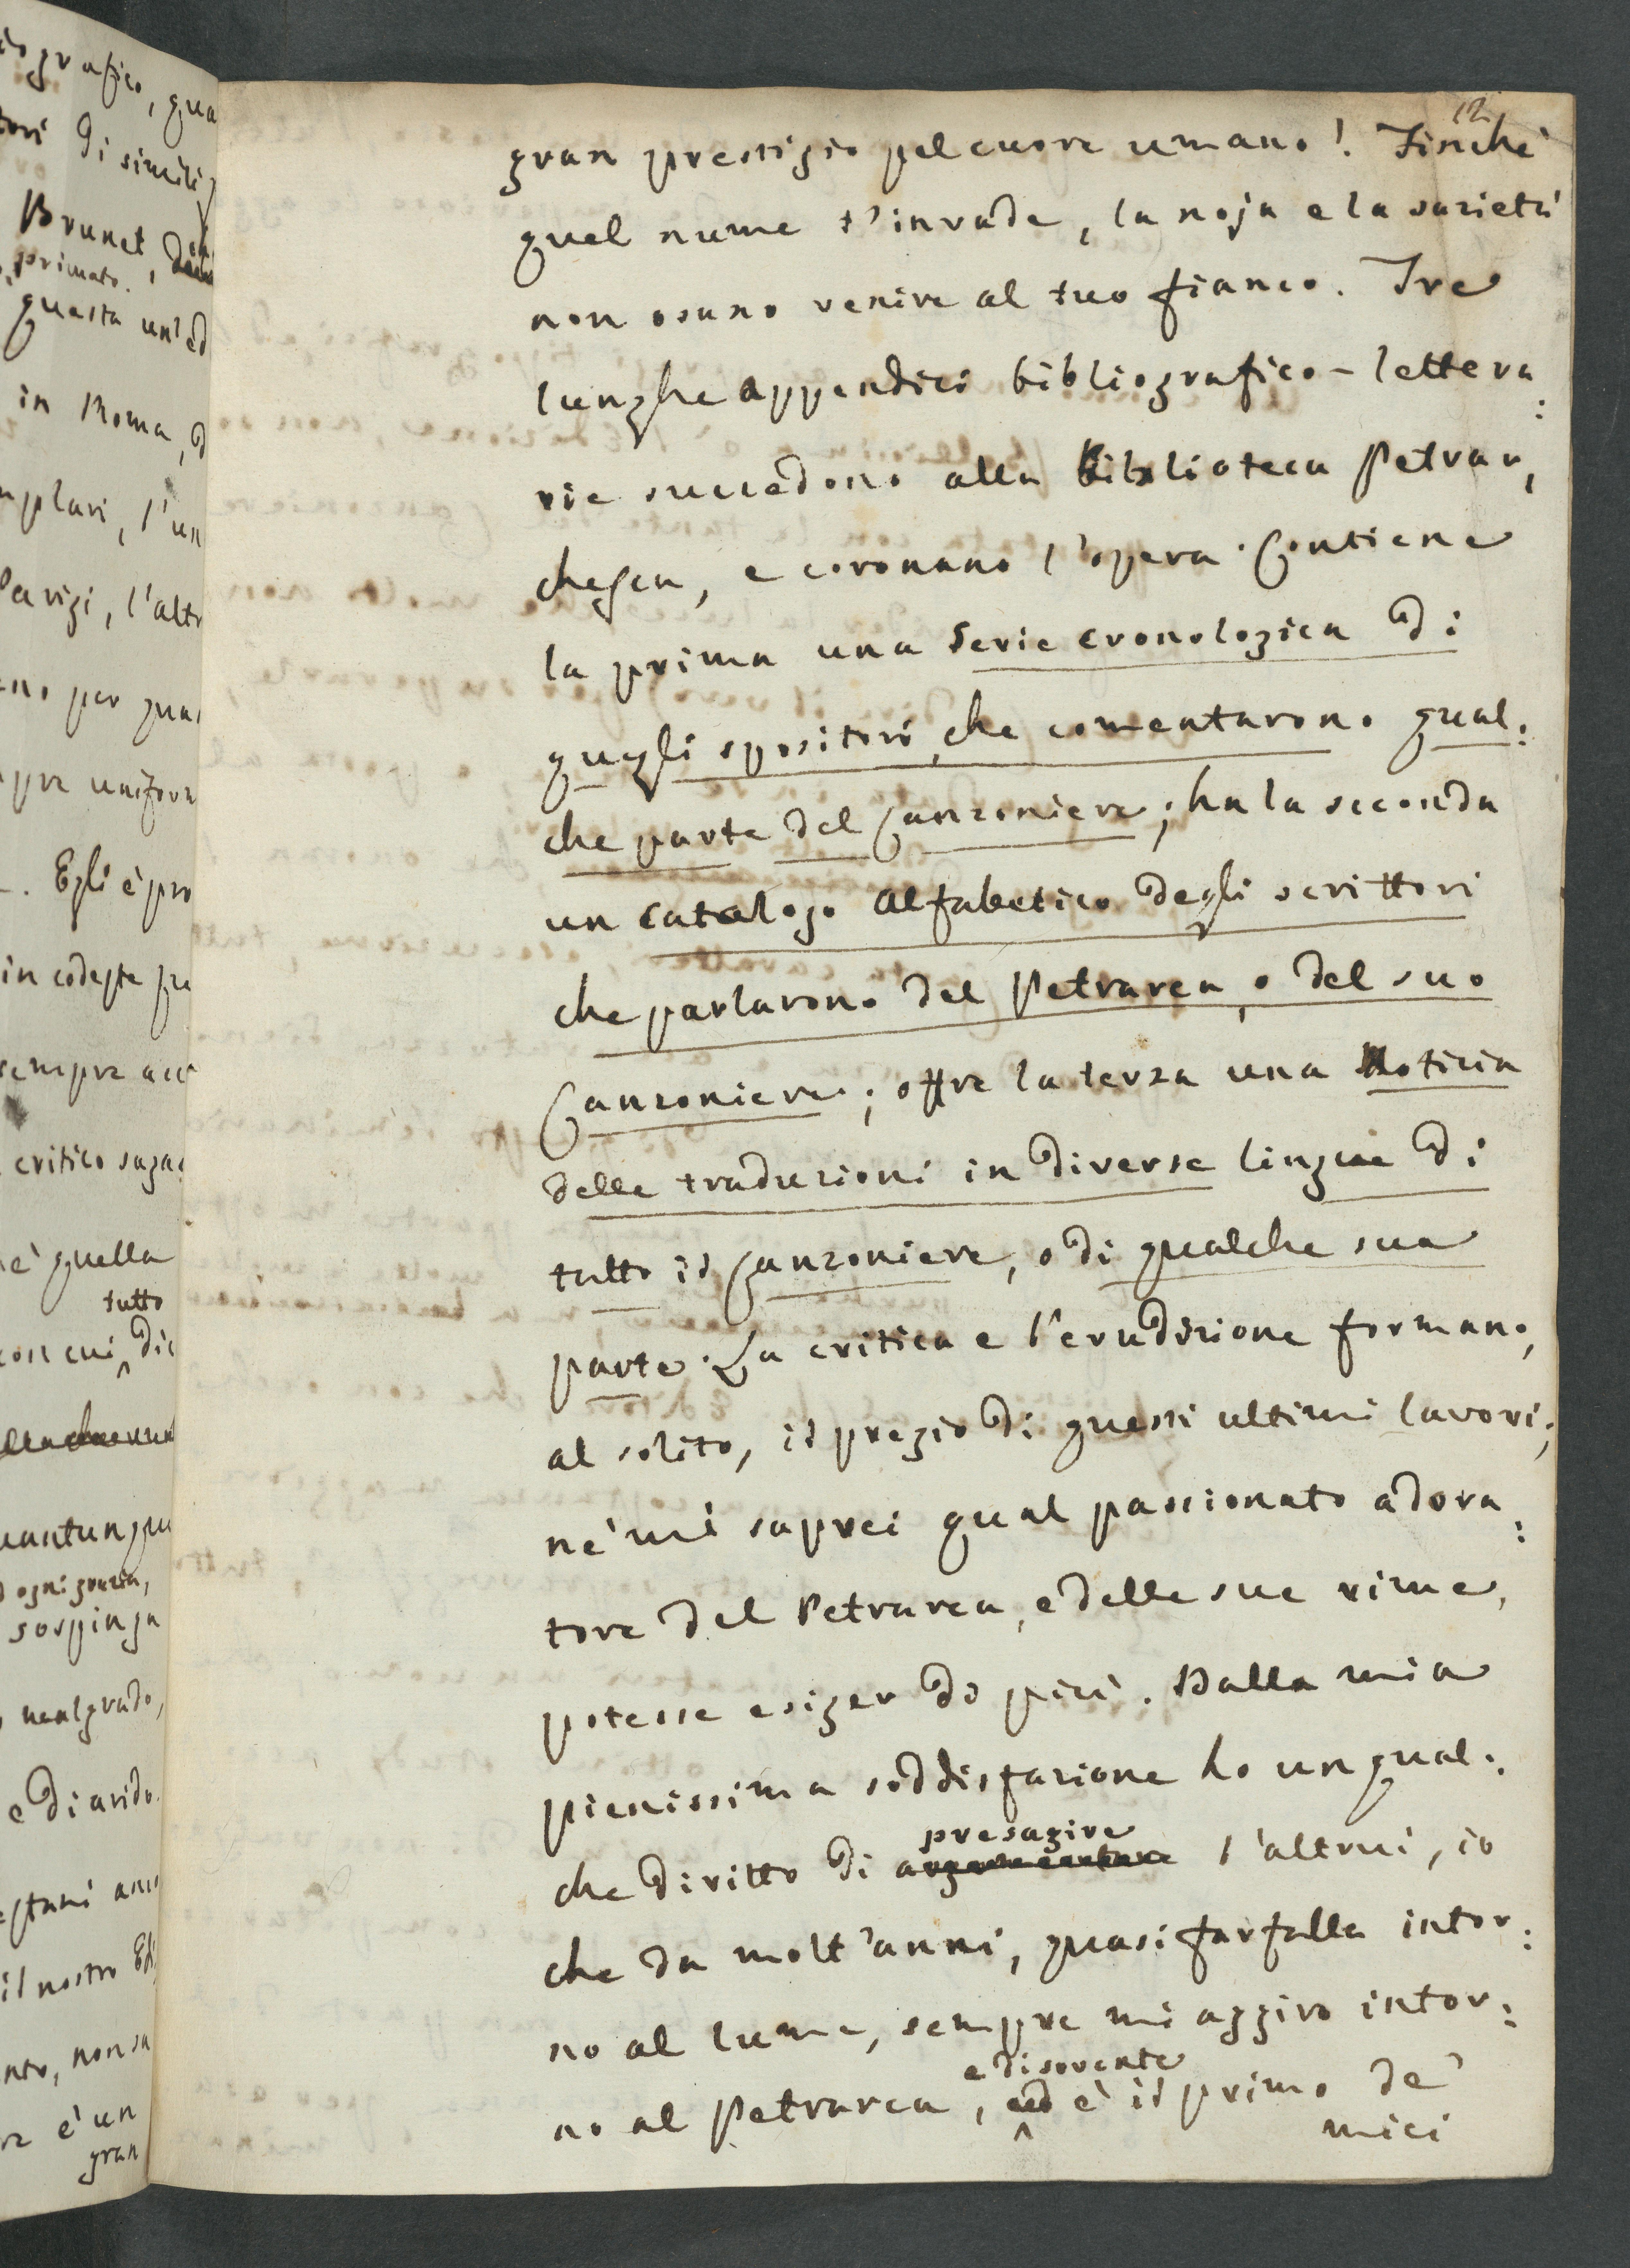 ografico, qua
tori di simili
Brunet,
primato.
questa un'ed
in Roma, d
mplari, l'un
Parigi, l'altr
no per qua
pre unifor
. Egli è pro
in codeste
sempre acc
critico saga
è quella
tutto
con cui die
uantunqu
ogni grazia,
sospinga
malgrado,
e di arido
il nostro Edi
nto, non sa
re è un
gran
12
gran prestigio pel cuore umano! Finchè
quel nume t'invade, la noja e la sazietà
non osano venire al tuo fianco. Tre
lunghe appendici bibliografico-lettera:
rie succedono alla Biblioteca Petrar,
chesca, e coronano l'opera. Contiene
la prima una Serie cronologica di
quegli spositori, che comentarono qual:
che parte del Canzoniere; ha la seconda
un Catalogo Alfabetico degli scrittori
che parlarono del Petrarca, o del suo
Canzoniere; offre la terza una Notizia
delle traduzioni in diverse lingue di
tutto il Canzoniere, o di qualche sua
parte. La critica e l'erudizione formano,
al solito, il pregio di questi ultimi lavori;
nè mi saprei qual passionato adora:
tore del Petrarca, e delle sue rime,
potesse esiger di più. Dalla mia
pienissima soddisfazione ho un qual:
presagire
che diritto di argomentare l'altrui, io
che da molt'anni, quasi farfalla intor:
no al lume, sempre mi aggiro intor:
e di sovente
no al Petrarca, ed è il primo de'
miei